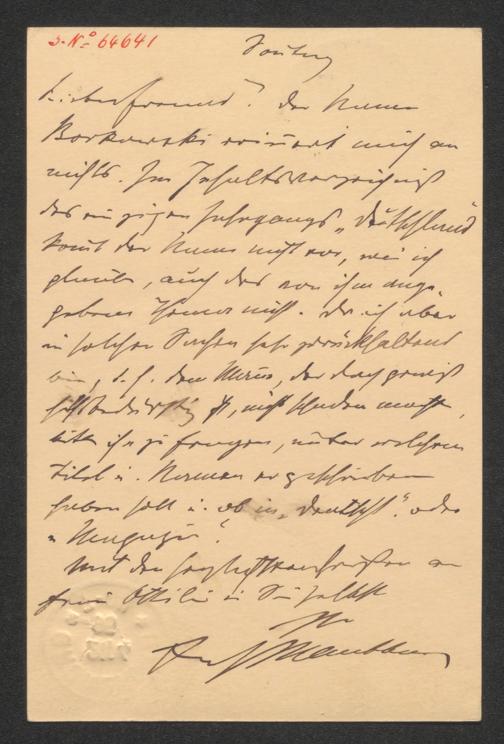 J. No 64641
Sonntag
Lieber Freund! Der Name
Borkowski erinnert mich an
nichts. Im Inhaltsverzeichniß
des einzigen Jahrgangs „Deutschland"
kommt der Name nicht vor, wie ich
glaube, auch das von ihm ange-
gebene Thema nicht. Da ich aber
in solchen Sachen sehr zurückhaltend
bin, d. h. dem Mann, der doch gewiß
hilfsbedürftig ist, nicht schaden möchte,
bitte ihn zu fragen, unter welchem
Titel u. Namen er geschrieben
haben soll u. ob in „Deutschl." oder
"Magazin".
Mit den herzlichsten Grüßen an
Frau Ottilie u. Sie selbst
Ihr
Mauthner